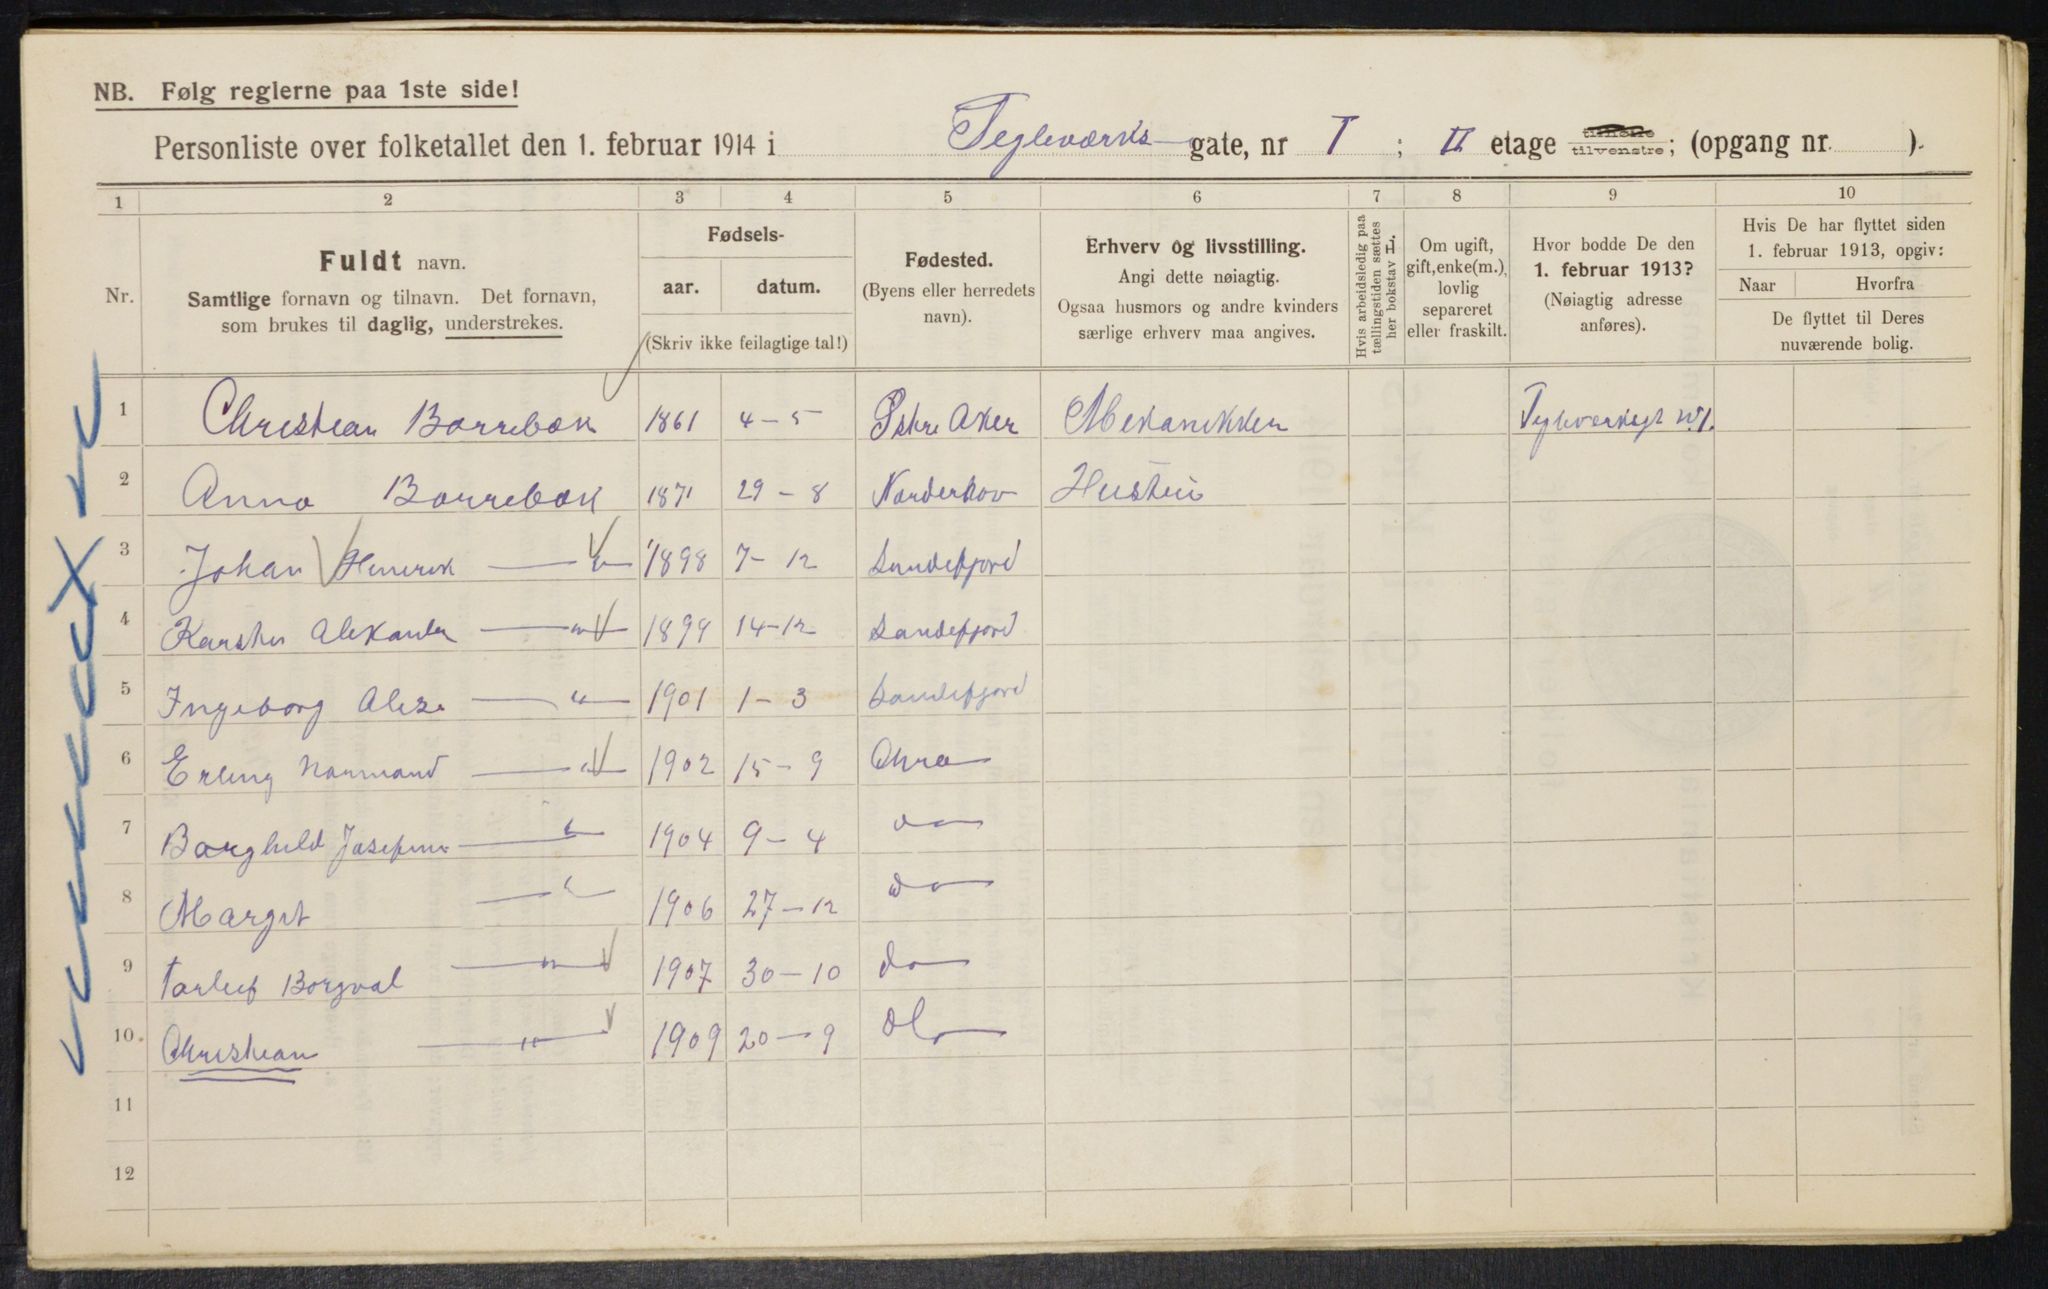 NB. Følg reglerne paa 1ste side!
Personliste over folketallet den 1. februar 1914 i Teglevarks gate, nr I ; II etage tilhøire tilvenstre; (opgang nr. ).
1 2 3 4 5 6 7 8 9 10
Nr.
Fuldt navn.
Samtlige fornavn og tilnavn. Det fornavn,
som brukes til daglig, understrekes.
Fødsels-
aar. datum.
(Skriv ikke feilagtige tal!)
Fødested.
(Byens eller herredets
navn).
Erhverv og livsstilling.
Angi dette nøiagtig.
Ogsaa husmors og andre kvinders
særlige erhverv maa angives.
Hvis arbeidsledig paa
tællingstiden sættes
her bokstav L.
Om ugift,
gift, enke(m.),
lovlig
separeret
eller fraskilt.
Hvor bodde De den
1. februar 1913?
(Nøiagtig adresse
anføres).
Hvis De har flyttet siden
1. februar 1913, opgiv:
Naar Hvorfra
De flyttet til Deres
nuværende bolig.
1 Christian Borrebæk 1861 4-5 Østre Aker Mekanikker Teglverksgt No 1.
2 Anna Borrebæk 1871 29-8 Norderhov Hustru
3 Johan Henrik — " — 1898 7-12 Sandefjord
4 Karsten Alexander — " — 1899 14-12 Sandefjord
5 Ingeborg Alise — " — 1901 1-3 Sandefjord
6 Erling Normand — " — 1902 15-9 Chra
7 Borghild Josefine — " — 1904 9-4 do
8 Margit — " — 1906 27-12 do
9 Torleif Borgval — " — 1907 30-10 do
10. Christian — " — 1909 20-9 do
11
12